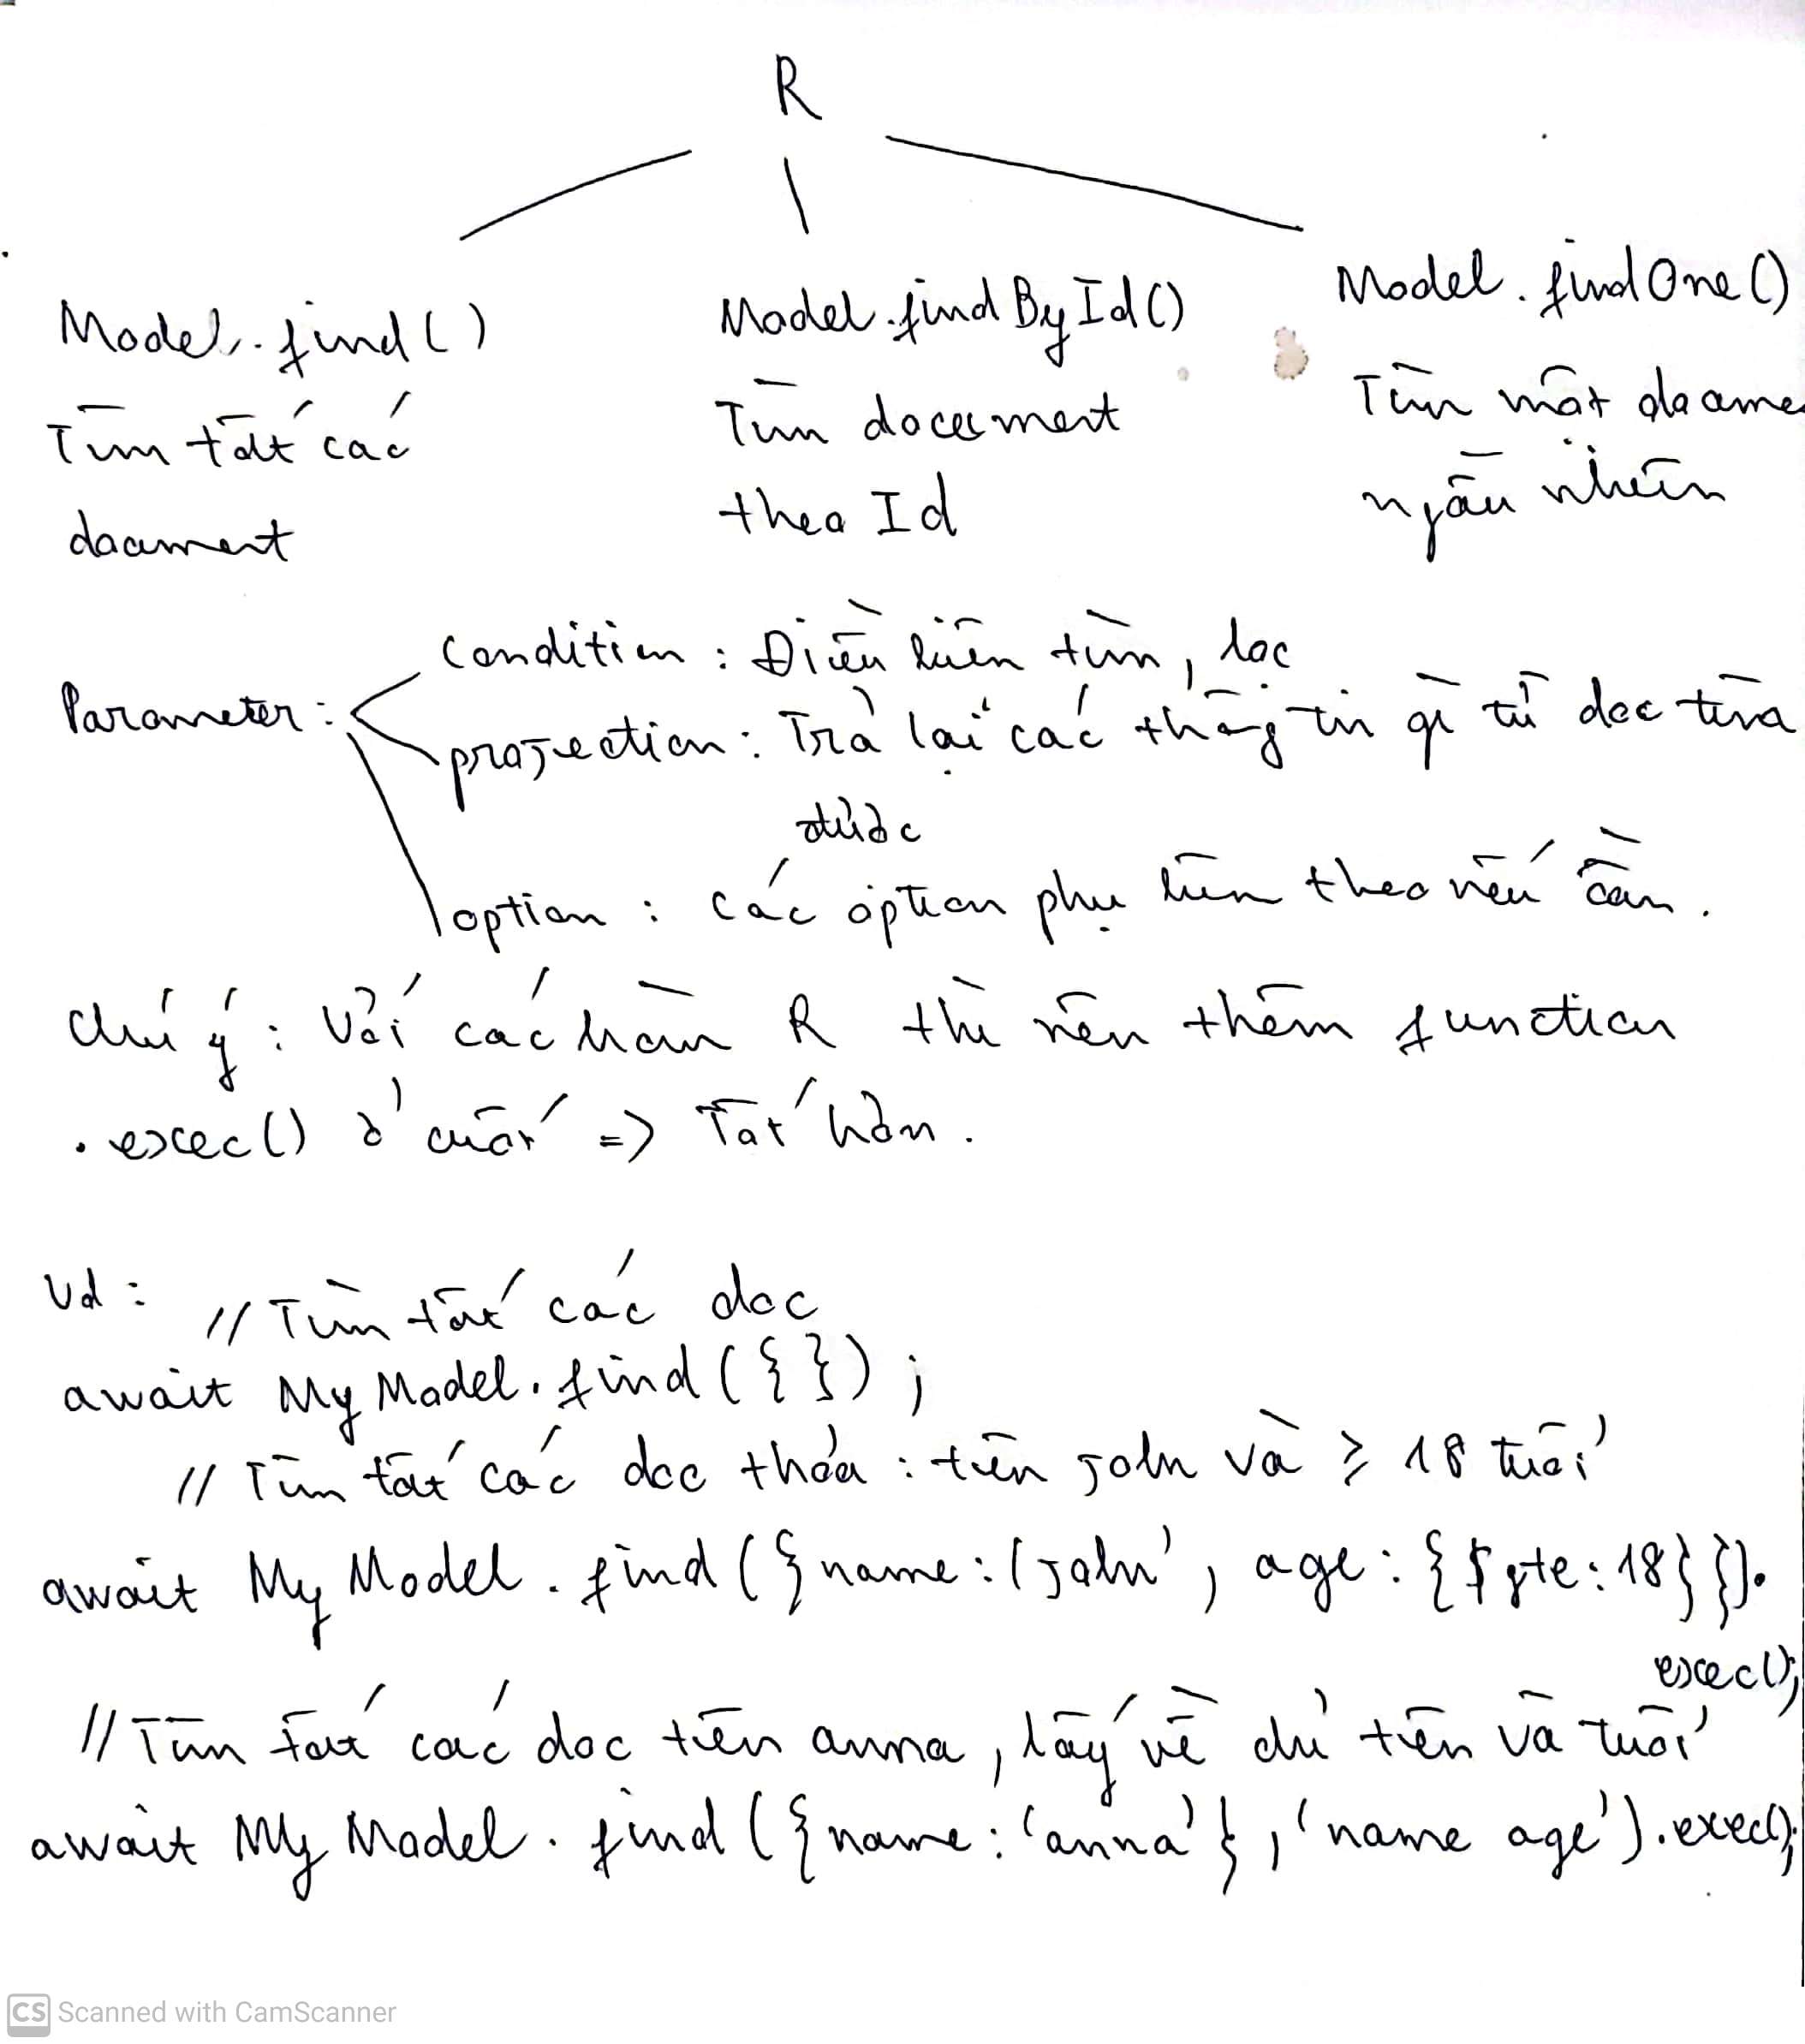 R
Model.find()
Tìm tất các
document
Model.findById()
Tìm document
theo Id
Model.findOne()
Tìm một docume
ngẫu nhiên
Parameter:
condition: Điều kiện tìm, lọc
projection: Trả lại các thông tin gì từ doc tìm
được
option: các option phụ kèm theo nếu cần.
Chú ý: Với các hàm R thì nên thêm function
.exec() ở cuối => Tốt hơn.
Vd: // Tìm tất các doc
await MyModel.find({});
// Tìm tất các doc thỏa: tên john và ≥ 18 tuổi
await MyModel.find({name: 'john', age: {$gte: 18}}).
exec();
// Tìm tất các doc tên anna, lấy về chỉ tên và tuổi
await MyModel.find({name: 'anna'}, 'name age').exec();
CS Scanned with CamScanner